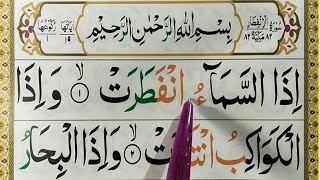 سُوْرَةُ الْاِنْفِطَارِ
٨٢ مَكِّيَّة ٨٢
بِسْمِ اللّٰهِ الرَّحْمٰنِ الرَّحِيْمِ
اٰيَاتُهَا ١٩
رُكُوْعُهَا ١
اِذَا السَّمَآءُ انْفَطَرَتْ ۙ‏﴿۱﴾ وَاِذَا
الْكَوَاكِبُ انْتَ‍ ‍تْ ۙ‏﴿۲﴾ وَاِذَا الْبِحَارُ